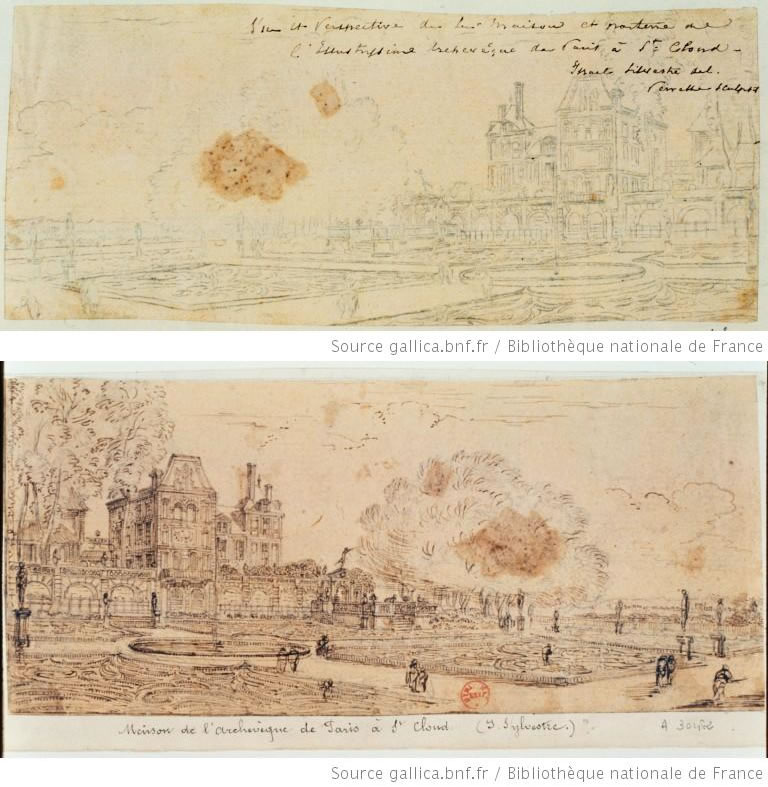 Vue et Perspective de la Maison et parterre de
l'Illustrissime Archevêque de Paris, à St. Cloud -
Israel Silvestre del.
Perrelle Sculpsit
Source gallica.bnf.fr / Bibliothèque nationale de France
Maison de l'archevêque de Paris à St Cloud. (I. Sylvestre.)
Source gallica.bnf.fr / Bibliothèque nationale de France